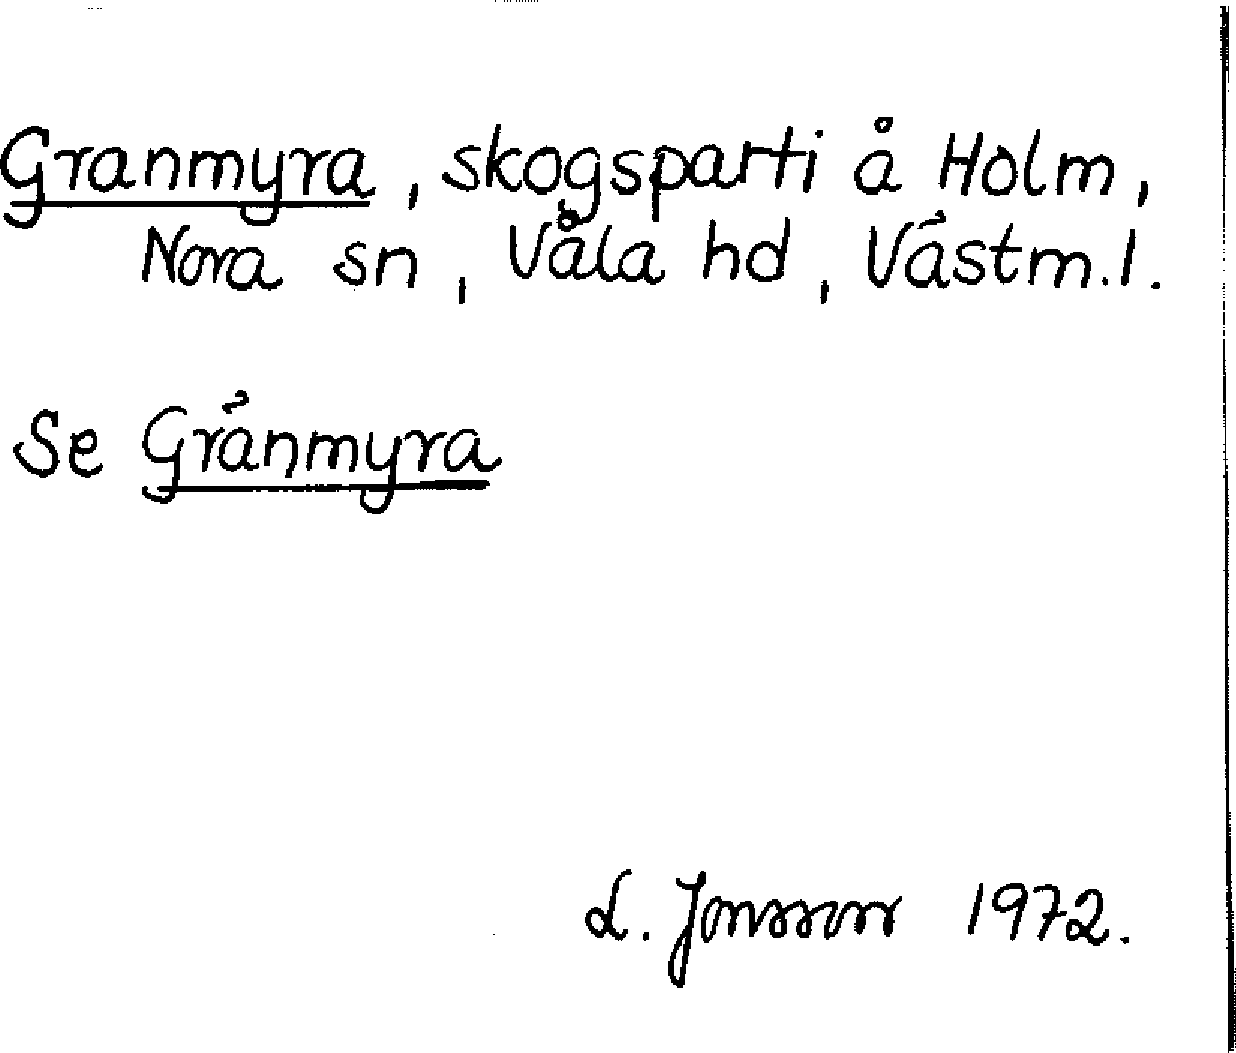 Granmyra, skogsparti å Holm,
Nora sn, Våla hd, Västm.l.
Se Gränmyra
L. Jonsson 1972.